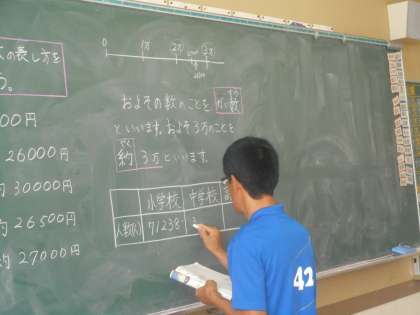 0 1万 2万 3万
の表し方を
う。
00円
26000円
約30000円
約26500円
約27000円
およその数のことを がい数
といいます。およそ3万のことを
やく
約 3万といいます。
小学校 中学校
人数(人) 71238
42